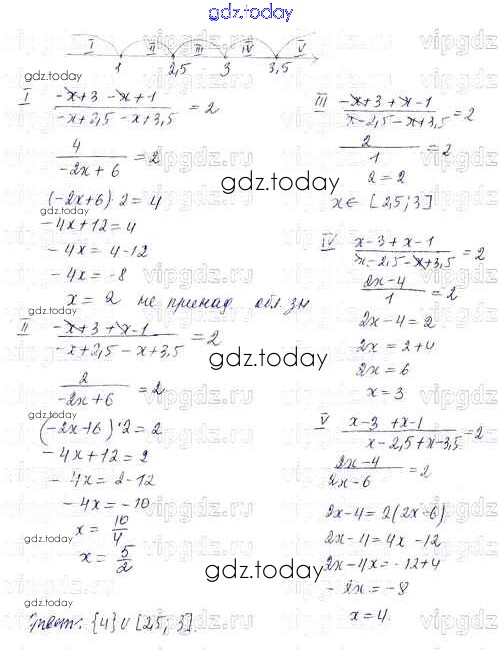 gdz.today
I II III IV V
1 2,5 3 3,5
gdz.today
I (-x+3-x+1)/(-x+2,5-x+3,5) = 2
4/(-2x+6) = 2
(-2x+6)·2=4
-4x+12=4
-4x=4-12
-4x=-8
x=2 не принад. обл. зн
II (-x+3+x-1)/(-x+2,5-x+3,5) = 2
2/(-2x+6) = 2
(-2x+6)·2=2
-4x+12=2
-4x=2-12
-4x=-10
x=10/4
x=5/2
III (-x+3+x-1)/(x-2,5-x+3,5) = 2
2/1 = 2
2=2
x∈[2,5;3]
IV (x-3+x-1)/(x-2,5-x+3,5) = 2
(2x-4)/1 = 2
2x-4=2
2x=2+4
2x=6
x=3
V (x-3+x-1)/(x-2,5+x-3,5) = 2
(2x-4)/(2x-6) = 2
2x-4=2(2x-6)
2x-4=4x-12
2x-4x=-12+4
-2x=-8
x=4.
Ответ: {4}∪[2,5;3].
gdz.today
gdz.today
gdz.today
gdz.today
gdz.today
gdz.today
gdz.today
gdz.today
vipgdz.ru